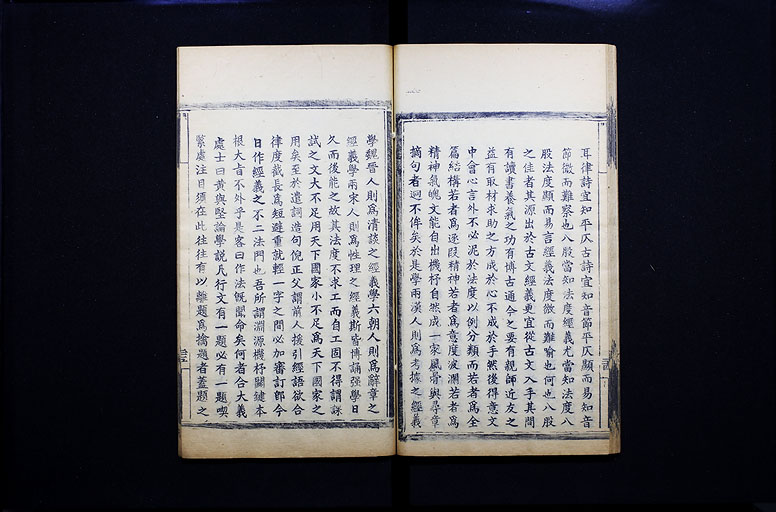 耳律詩宜知平仄古詩宜知音節平仄顯而易知音
節微而難察也八股當知法度經義尤當知法度八
股法度顯而易言經義法度微而難喻也何也八股
之佳者其源出於古文經義更宜從古文入手其間
有讀書養氣之功有博古通今之要有親師近友之
益有取材求助之方成於心不成於手然後得意文
中會心言外不必泥於法度以例分類而若者為全
篇結構若者爲逐段精神若者爲意度波瀾若者爲
精神氣魄文能自出機杼自然成一家風骨與尋章
摘句者迥不侔矣於是學兩漢人則爲考據之經義
學魏晉人則爲清談之經義學六朝人則爲辭章之
經義學兩宋人則爲性理之經義斯皆博誦强學日
久而後能之故其法度不求工而自工固不得謂課
試之文大不足用天下國家小不足爲天下國家之
用矣至於遣詞造句倪正父謂前人援引經語欲合
律度截長爲短避重就輕一字之間必加審訂卽今
日作經義之不二法門也吾所謂淵源機杼關鍵本
根大旨不外乎是客曰作法旣聞命矣何者合大義
處士曰黄與堅論學説凡行文有一題必有一題喫
緊處注目須在此往往有以離題爲擒題者蓋題之